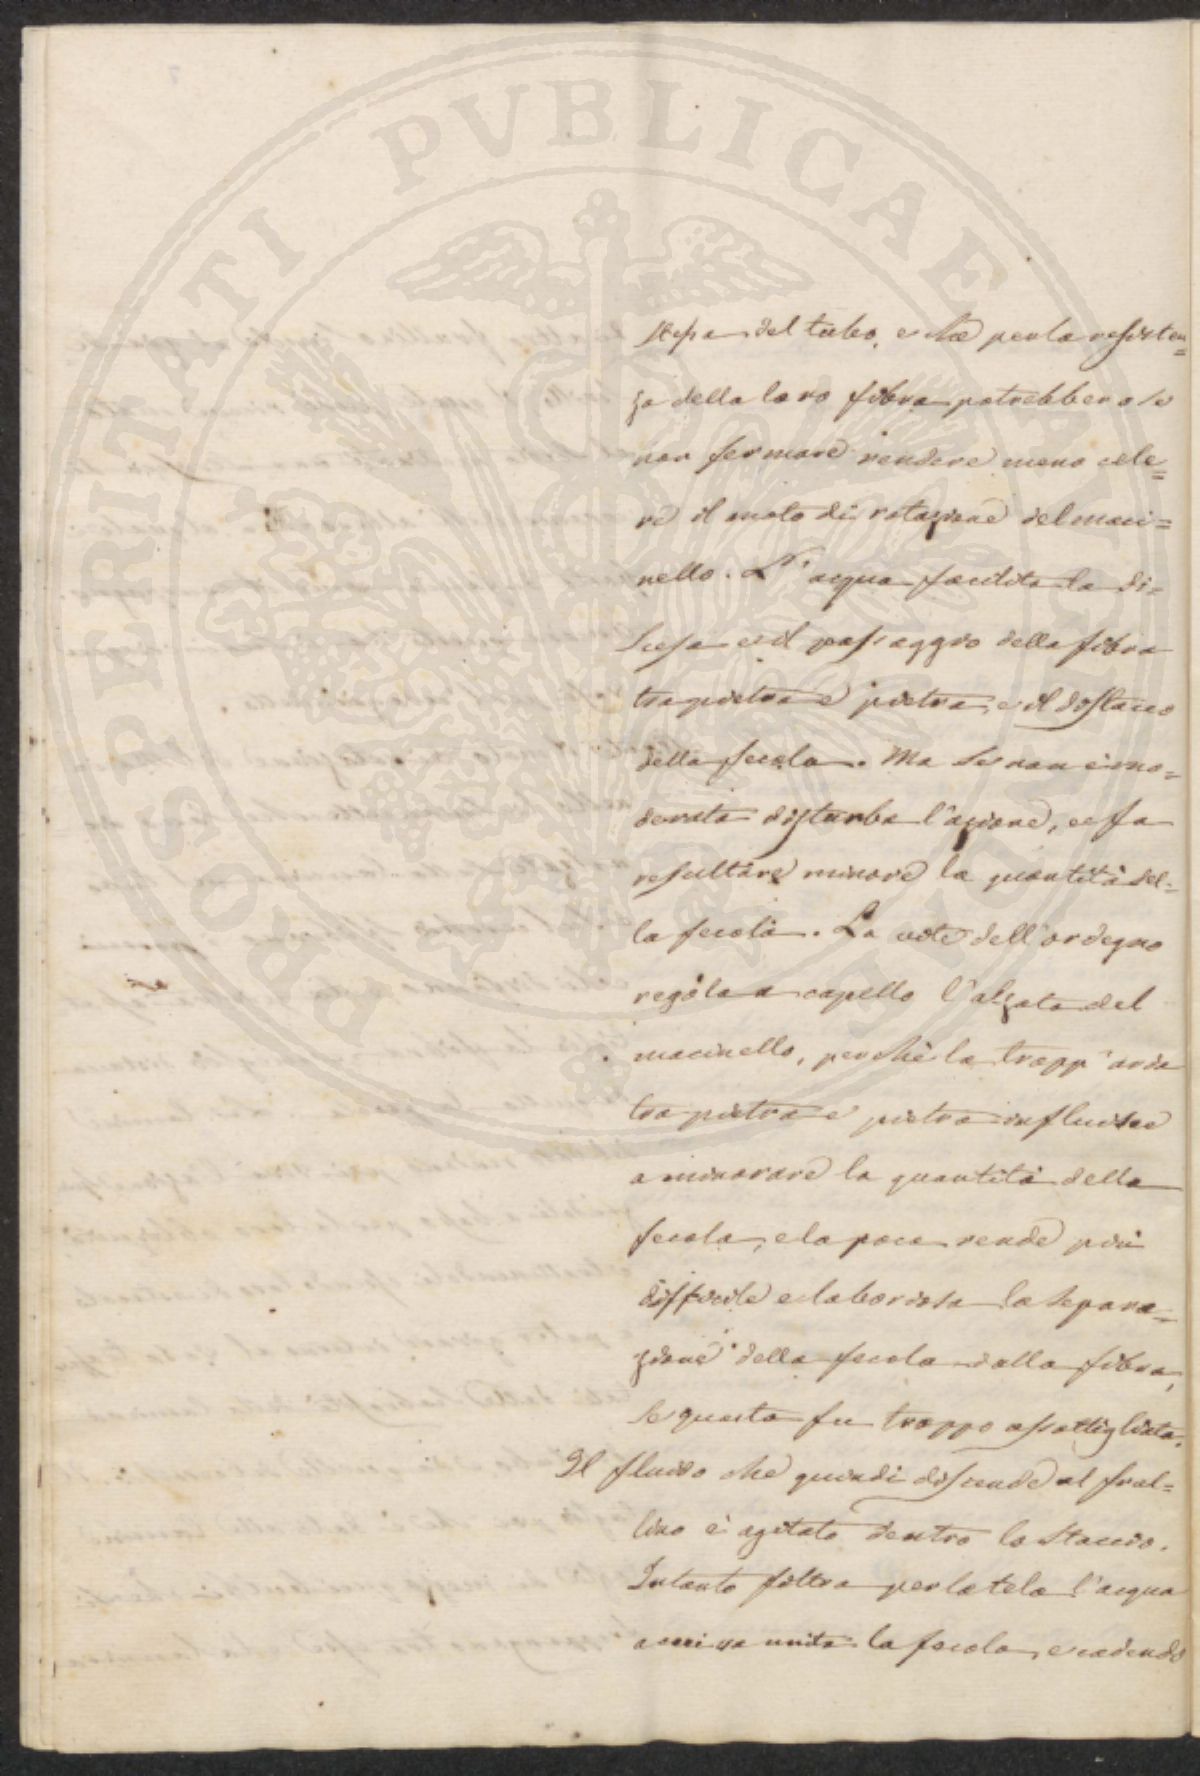 PROSPERITATI PVBLICAE AVGENDAE
stessa del tubo, e che per la resisten=
za della loro fibra potrebbero se
non fermare rendere meno cele=
re il moto di rotazione del maci=
nello. L'acqua facilita la di=
scesa ed il passaggio della fibra
tra pietra e pietra, e il distacco
della fecola. Ma se non è mo=
derata disturba l'azione, e fa
resultare minore la quantità del=
la fecola. La vite dell'ordegno
regola a capello l'alzata del
macinello, perchè la tropp'aria
tra pietra e pietra influisce
a minorare la quantità della
fecola, e la poca rende più
difficile e laboriosa la separa=
zione della fecola dalla fibra,
se questa fu troppo assottigliata.
Il fluido che quindi discende al frul=
lino è agitato dentro lo staccio.
Intanto filtra per la tela l'acqua
a cui va unita la fecola, e cadendo